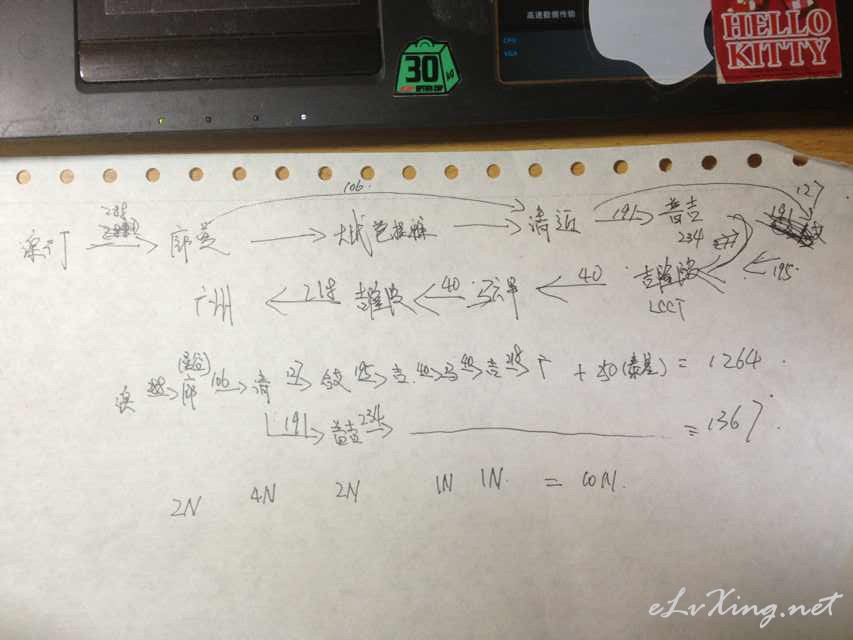 高速数据传输
CPU
VGA
30
KG
HELLO
KITTY
106.
127
廊曼 → 大城 → 清迈 191→ 普吉
234
195.
广州 ← 218 吉隆坡 ← 40 马六甲 ← 40 吉隆坡
LCCT
廊 106→ 清 127→ 195→ 吉 40→ 马 40→ 吉 218→ 广 + 50 = 1264.
191→ 普吉 234→ = 1367.
2N 4N 2N 1N 1N. = 10N.
eLvXing.net